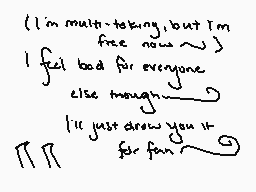 (I'm multi-taking, but I'm
free now ~)
I feel bad for everyone
else though
I'll just draw you it
for fun